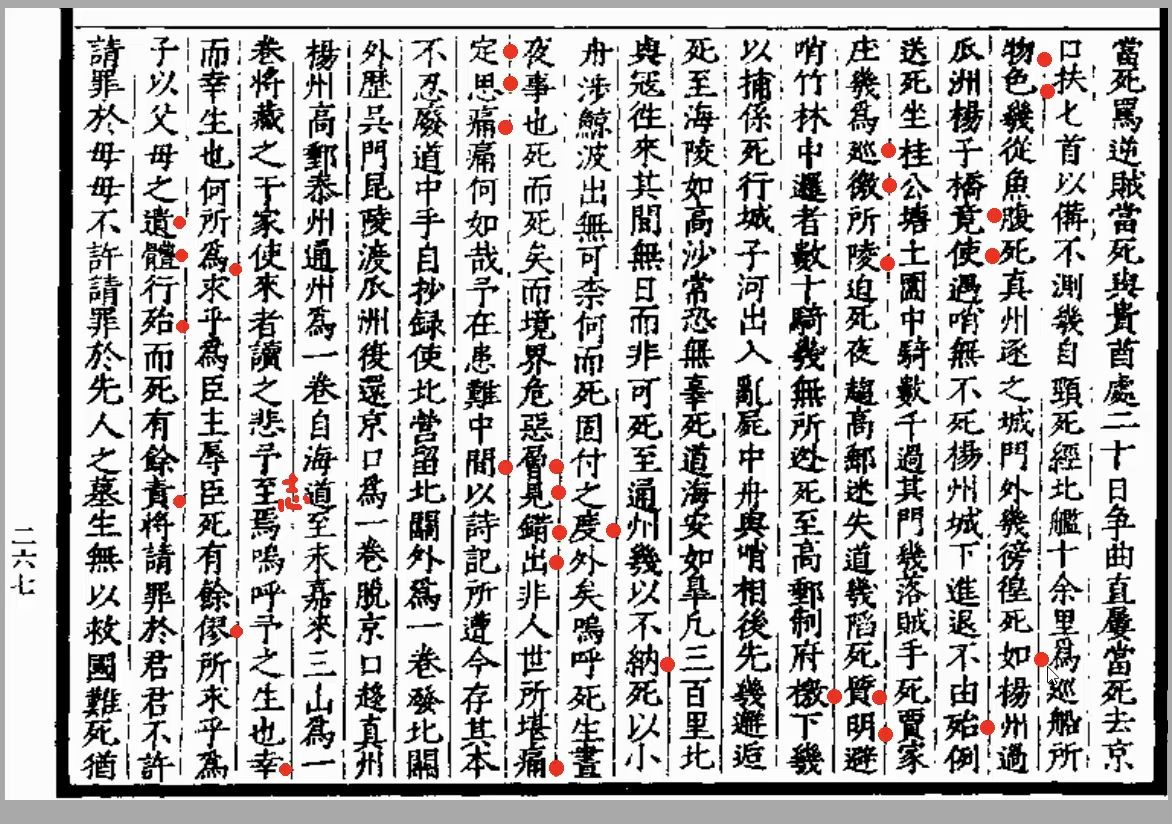 當死罵逆賊當死與貴酋處二十日争曲直屢當死去京
口扶匕首以備不測幾自頸死經北艦十余里爲巡船所
物色幾從魚腹死真州逐之城門外幾徬徨死如楊州過
瓜洲楊子橋竟使遇哨無不死楊州城下進退不由殆例
送死坐桂公塘土圍中騎數千過其門幾落賊手死賈家
庄幾爲巡徼所陵迫死夜趨高郵迷失道幾陷死質明避
哨竹林中邏者數十騎幾無所逃死至高郵制府檄下幾
以捕係死行城子河出入亂屍中舟與哨相後先幾邂逅
死至海陵如高沙常恐無辜死道海安如臯凡三百里北
與冦徃來其間無日而非可死至通州幾以不納死以小
舟涉鯨波出無可奈何而死固付之度外矣嗚呼死生晝
夜事也死而死矣而境界危惡層見錯出非人世所堪痛
定思痛痛何如哉予在患難中間以詩記所遭今存其本
不忍廢道中手自抄録使北營留北關外爲一卷發北關
外歷吳門昆陵渡瓜洲復還京口爲一卷脫京口趍真州
楊州高郵泰州通州爲一卷自海道至永嘉來三山爲一
卷將藏之于家使來者讀之悲予至焉嗚呼予之生也幸
志
而幸生也何所爲求乎爲臣主辱臣死有餘僇所求乎爲
子以父母之遺體行殆而死有餘責將請罪於君君不許
請罪於母母不許請罪於先人之墓生無以救國難死猶
二六七